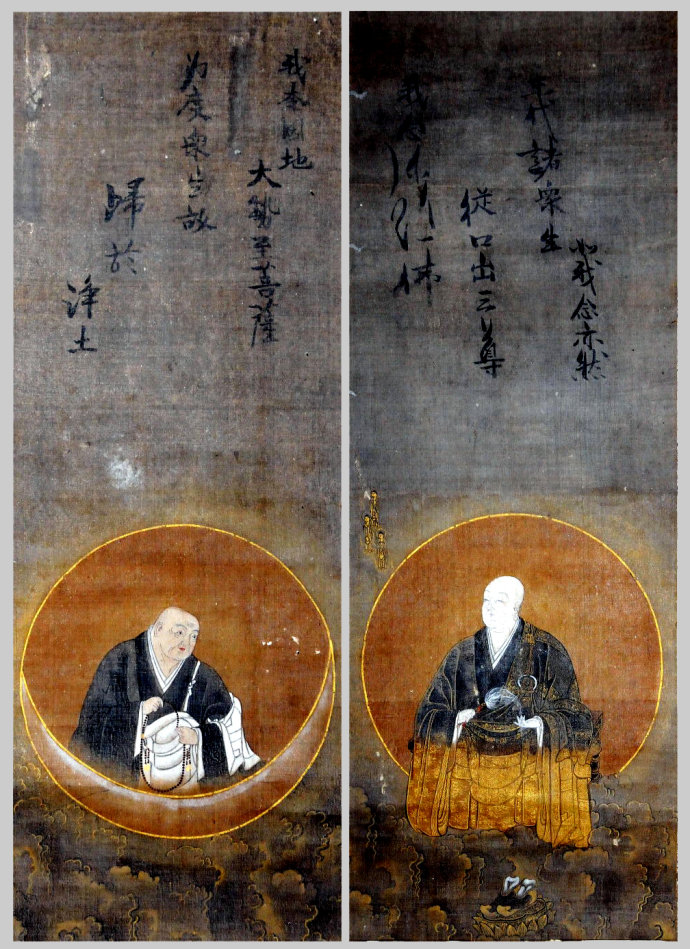 我本因地
大勢至菩薩
為度衆生故
歸於
淨土
我念弥陀佛
從口出三尊
末代諸衆生
如我念亦然